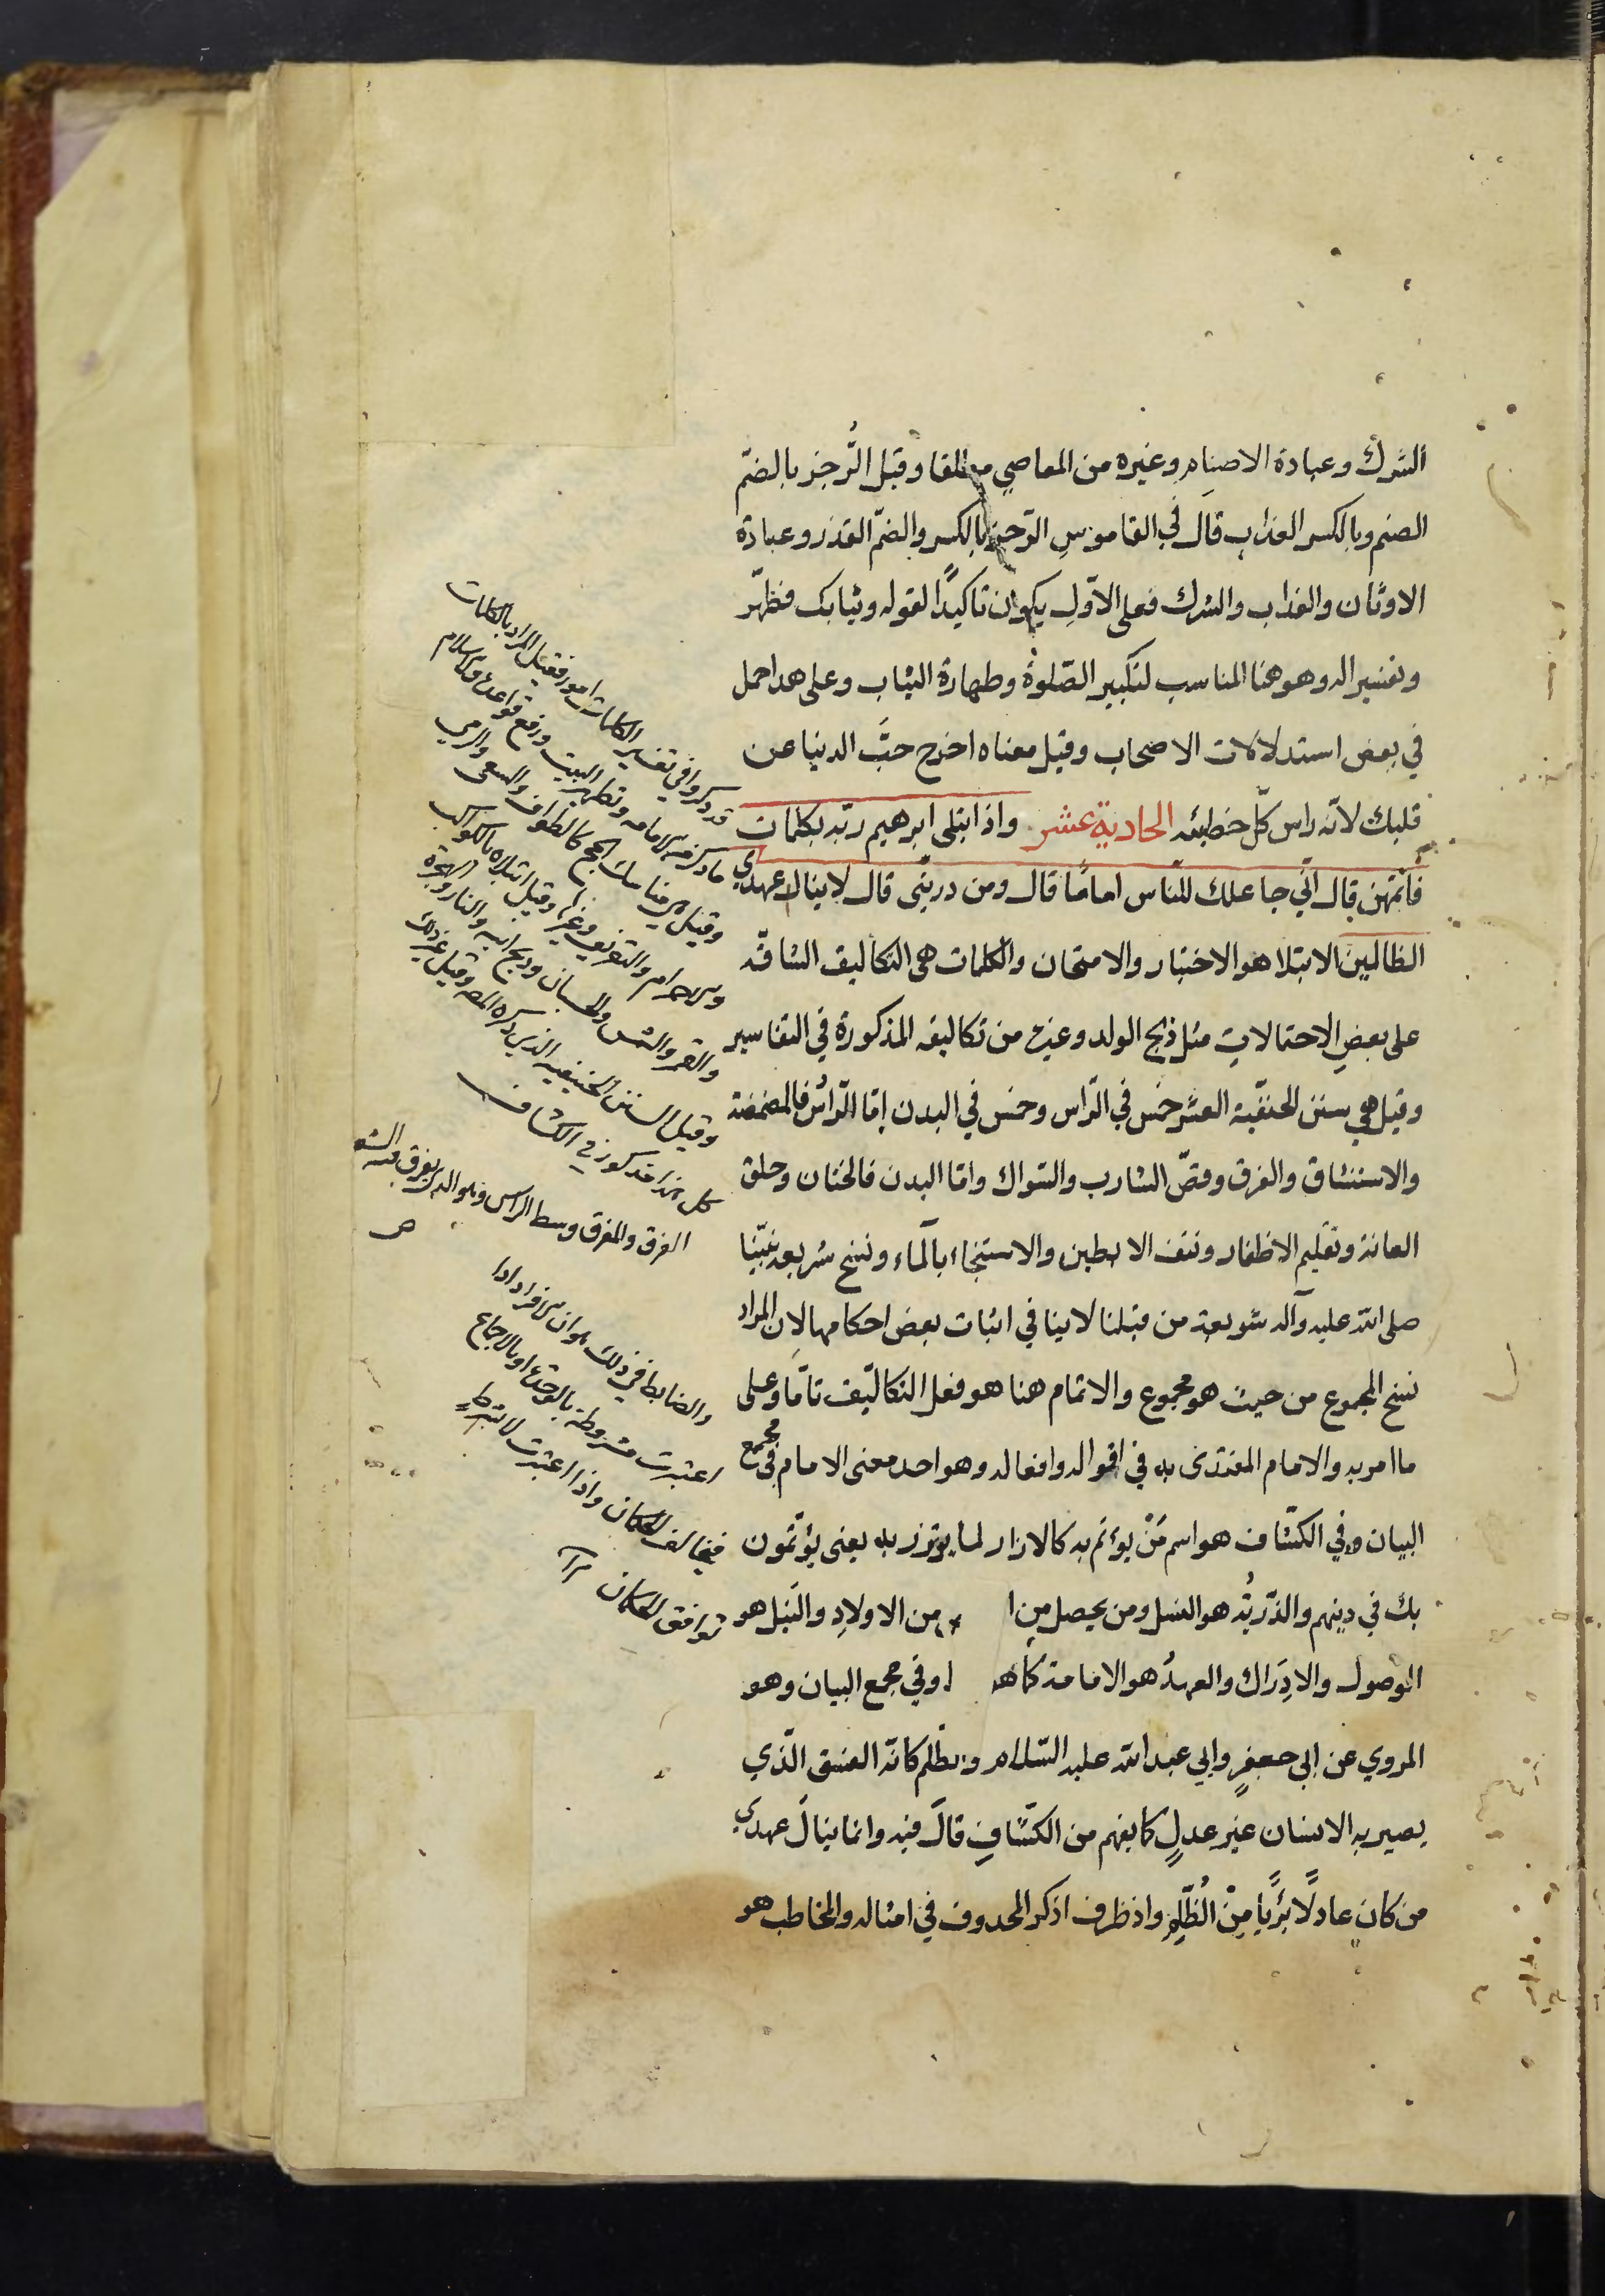 الشرك وعبادة الاصنام وغيره من المعاصي مطلقا وقيل الرُّجز بالضمّ
الصنم وبالكسر العذاب قال في القاموس الرّجز بالكسر والضمّ القذر وعبادة
الاوثان والعذاب والشرك فعلى الاوّل يكون تاكيدًا لقوله وثيابك فطهّر
وتفسير اله وهو هنا المناسب لتكبير الصّلوة وطهارة الثياب وعلى هذا حمل
في بعض استدلالات الاصحاب وقيل معناه اخرج حبّ الدنيا عن
قلبك لانّه راس كلّ خطيئه الحادية عشر واذ ابتلى ابرهيم ربّه بكلمات
فاتمّهن قال انّي جاعلك للنّاس امامًا قال ومن ذريتى قال لا ينال عهدي
الظالمين الابتلا هو الاختبار والامتحان والكلمات هى التكاليف الشاقّه
على بعض الاحتمالات مثل ذبح الولد وغيره من تكاليفه المذكورة في التفاسير
وقيل هي سنن الحنفيّة العشر خمس في الرّاس وخمس في البدن امّا الرّاس فالمضمضة
والاستنشاق والفرق وقصّ الشارب والسّواك وامّا البدن فالختان وحلق
العانة وتقليم الاظفار ونتف الابطين والاستنجاء بالماء ونسخ شريعة نبيّنا
صلى الله عليه وآله شريعة من قبلنا لا ينافي اثبات بعض احكامها لان المراد
نسخ المجموع من حيث هو مجموع والاتمام هنا هو فعل التكاليف تامّا وعلى
ما امر به والامام المقتدى به في اقواله وافعاله وهو احد معنى الامام في مجمع
البيان وفي الكشّاف هو اسم مَنْ يؤتم به كالازار لما يؤتزر به يعنى يؤتمّون
بك في دينهم والذّريّة هو النسل ومن يحصل من ا من الاولاد والنيل هو
الوصول والادراك والعهد هو الامامة كما هو ا وفي مجمع البيان وهو
المروي عن ابى جعفر وابي عبد الله عليه السّلام والظلم كانّه الفسق الّذي
يصير به الانسان غير عدلٍ كما يفهم من الكشّاف قال فيه وانما ينال عهدي
من كان عادلًا بريًّا مِنْ الظّلم واذ ظرف اذكر المحذوف في امثاله والمخاطب هو
قد ذكروا في تفسير الكلمات امور فقيل المراد بالكلمات
ما ذكره من الامامه وتطهير البيت ورفع قواعده والاسلام
وقيل هى مناسك الحج كالطواف والسعى والرمي
والاحرام والتعريف وغيرها وقيل ابتلاه بالكواكب
والقمر والشمس والختان وذبح ابنه والنار والهجرة
وقيل السنن الحنيفيه الذى ذكره المصه وقيل غير ذلك
كل هذا مذكور في الكشاف
الفرق والمفرق وسط الراس وهو الذى يفرق فيه الشعر
ص
والضابط في ذلك هو ان الافراد اذا
اعتبرت مشروطة بالوحدة او بالاجتماع
فيتخالف الحكمان واذا اعتبرت لا بشرط
توافق الحكمان